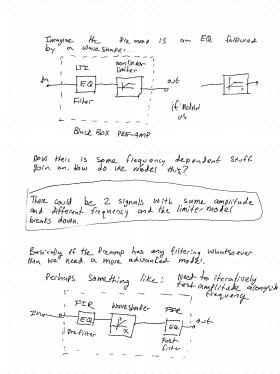 Imagine the Preamp is an EQ followed
by a waveshaper.
LTI
nonlinear
limiter
In
EQ
out
Filter
if model
us
x
BLACK BOX PRE-AMP
Now there is some frequency dependent stuff
goin on. How do we model this?
There could be 2 signals with same amplitude
and different frequency and the limiter model
breaks down.
Basically if the Preamp has any filtering whatsoever
then we need a more advanced model.
Perhaps something like:
Need to iteratively
test amplitude alongside
frequency
FIR
Waveshaper
FIR
In
EQ
x
EQ
out
Prefilter
Post
filter